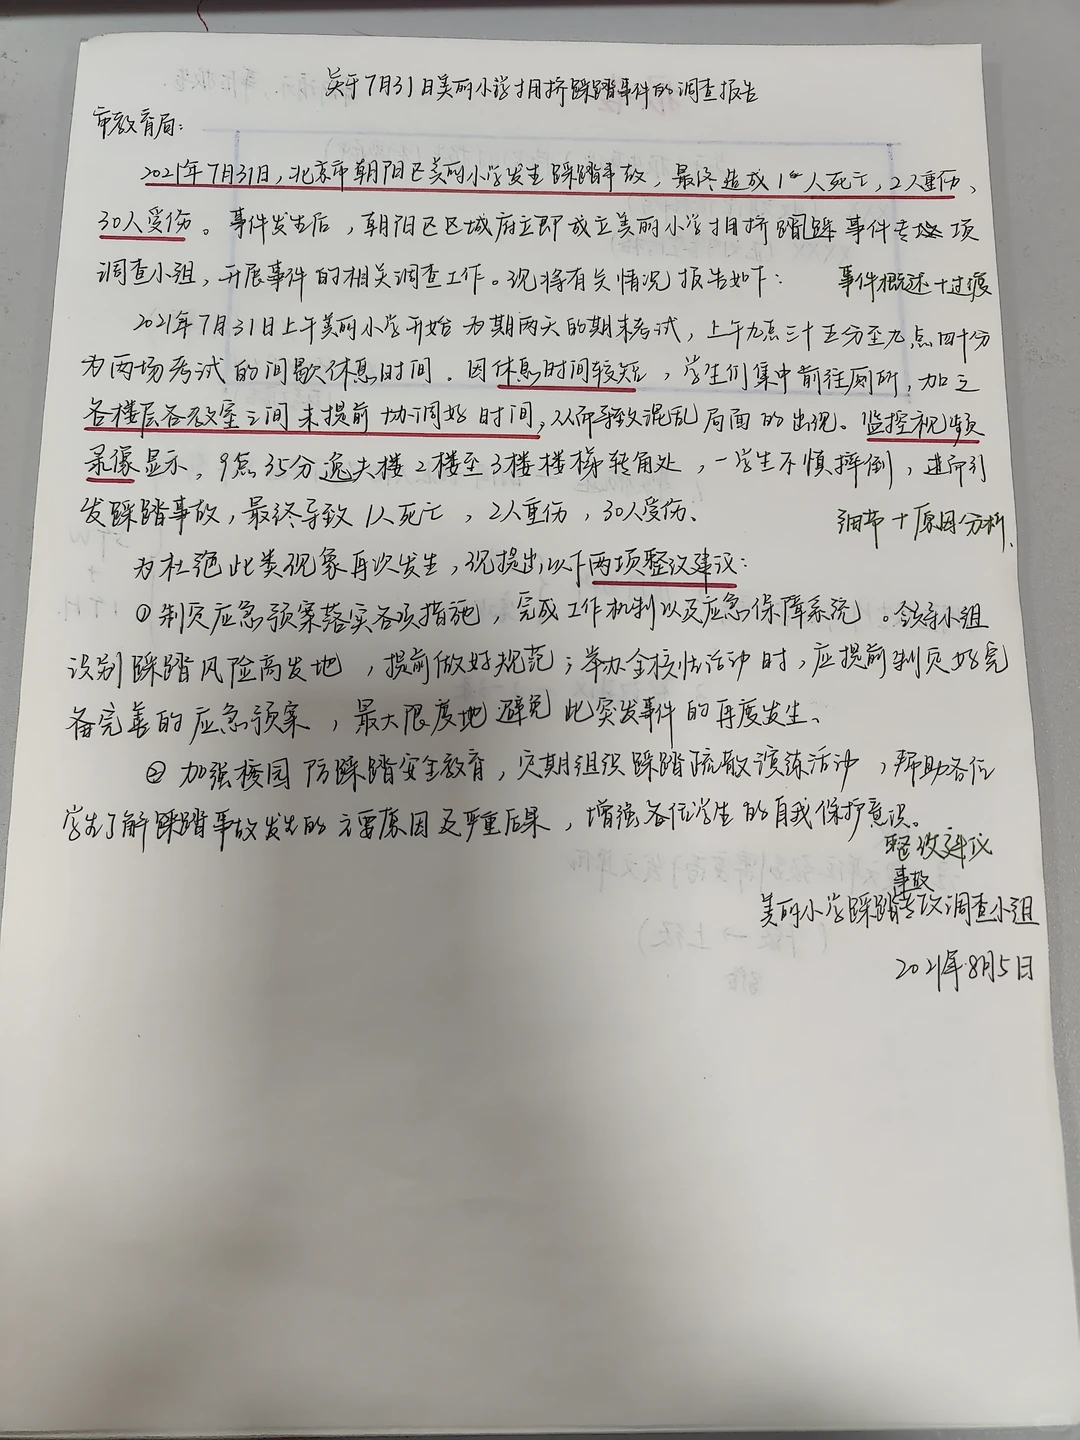 关于7月31日美丽小学拥挤踩踏事件的调查报告
市教育局：
2021年7月31日，北京市朝阳区美丽小学发生踩踏事故，最终造成1人死亡，2人重伤、
30人受伤。事件发生后，朝阳区区域府立即成立美丽小学拥挤踩踏事件专项
调查小组，开展事件的相关调查工作。现将有关情况报告如下：
事件概述+过痕
2021年7月31日上午美丽小学开始为期两天的期末考试，上午九点三十五分至九点四十分
为两场考试的间歇休息时间。因休息时间较短，学生们集中前往厕所，加之
各楼层各教室之间未提前协调好时间，从而导致混乱局面的出现。监控视频
录像显示，9点35分逸夫楼2楼至3楼楼梯转角处，一学生不慎摔倒，进而引
发踩踏事故，最终导致1人死亡，2人重伤，30人受伤、
细节+原因分析、
为杜绝此类现象再次发生，现提出以下两项整改建议：
①制定应急预案落实各项措施，完成工作机制以及应急保障系统。领导小组
识别踩踏风险高发地，提前做好规范；举办全校性活动时，应提前制定好完
备完善的应急预案，最大限度地避免此突发事件的再度发生、
②加强校园防踩踏安全教育，定期组织踩踏疏散演练活动，帮助各位
学生了解踩踏事故发生的主要原因及严重后果，增强各位学生的自我保护意识。
整改建议
事故
美丽小学踩踏专项调查小组
2021年8月5日